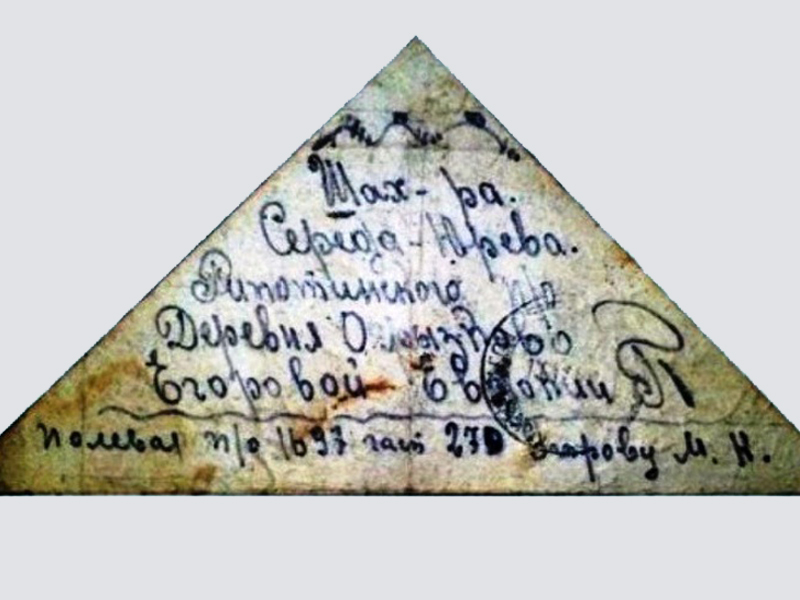 Шах- ра.
Середа-Юрева.
Рипотинского п/о
Деревня
Егоровой Евдокии П
полевая п/о 1697 част 270 Егорову М. Н.